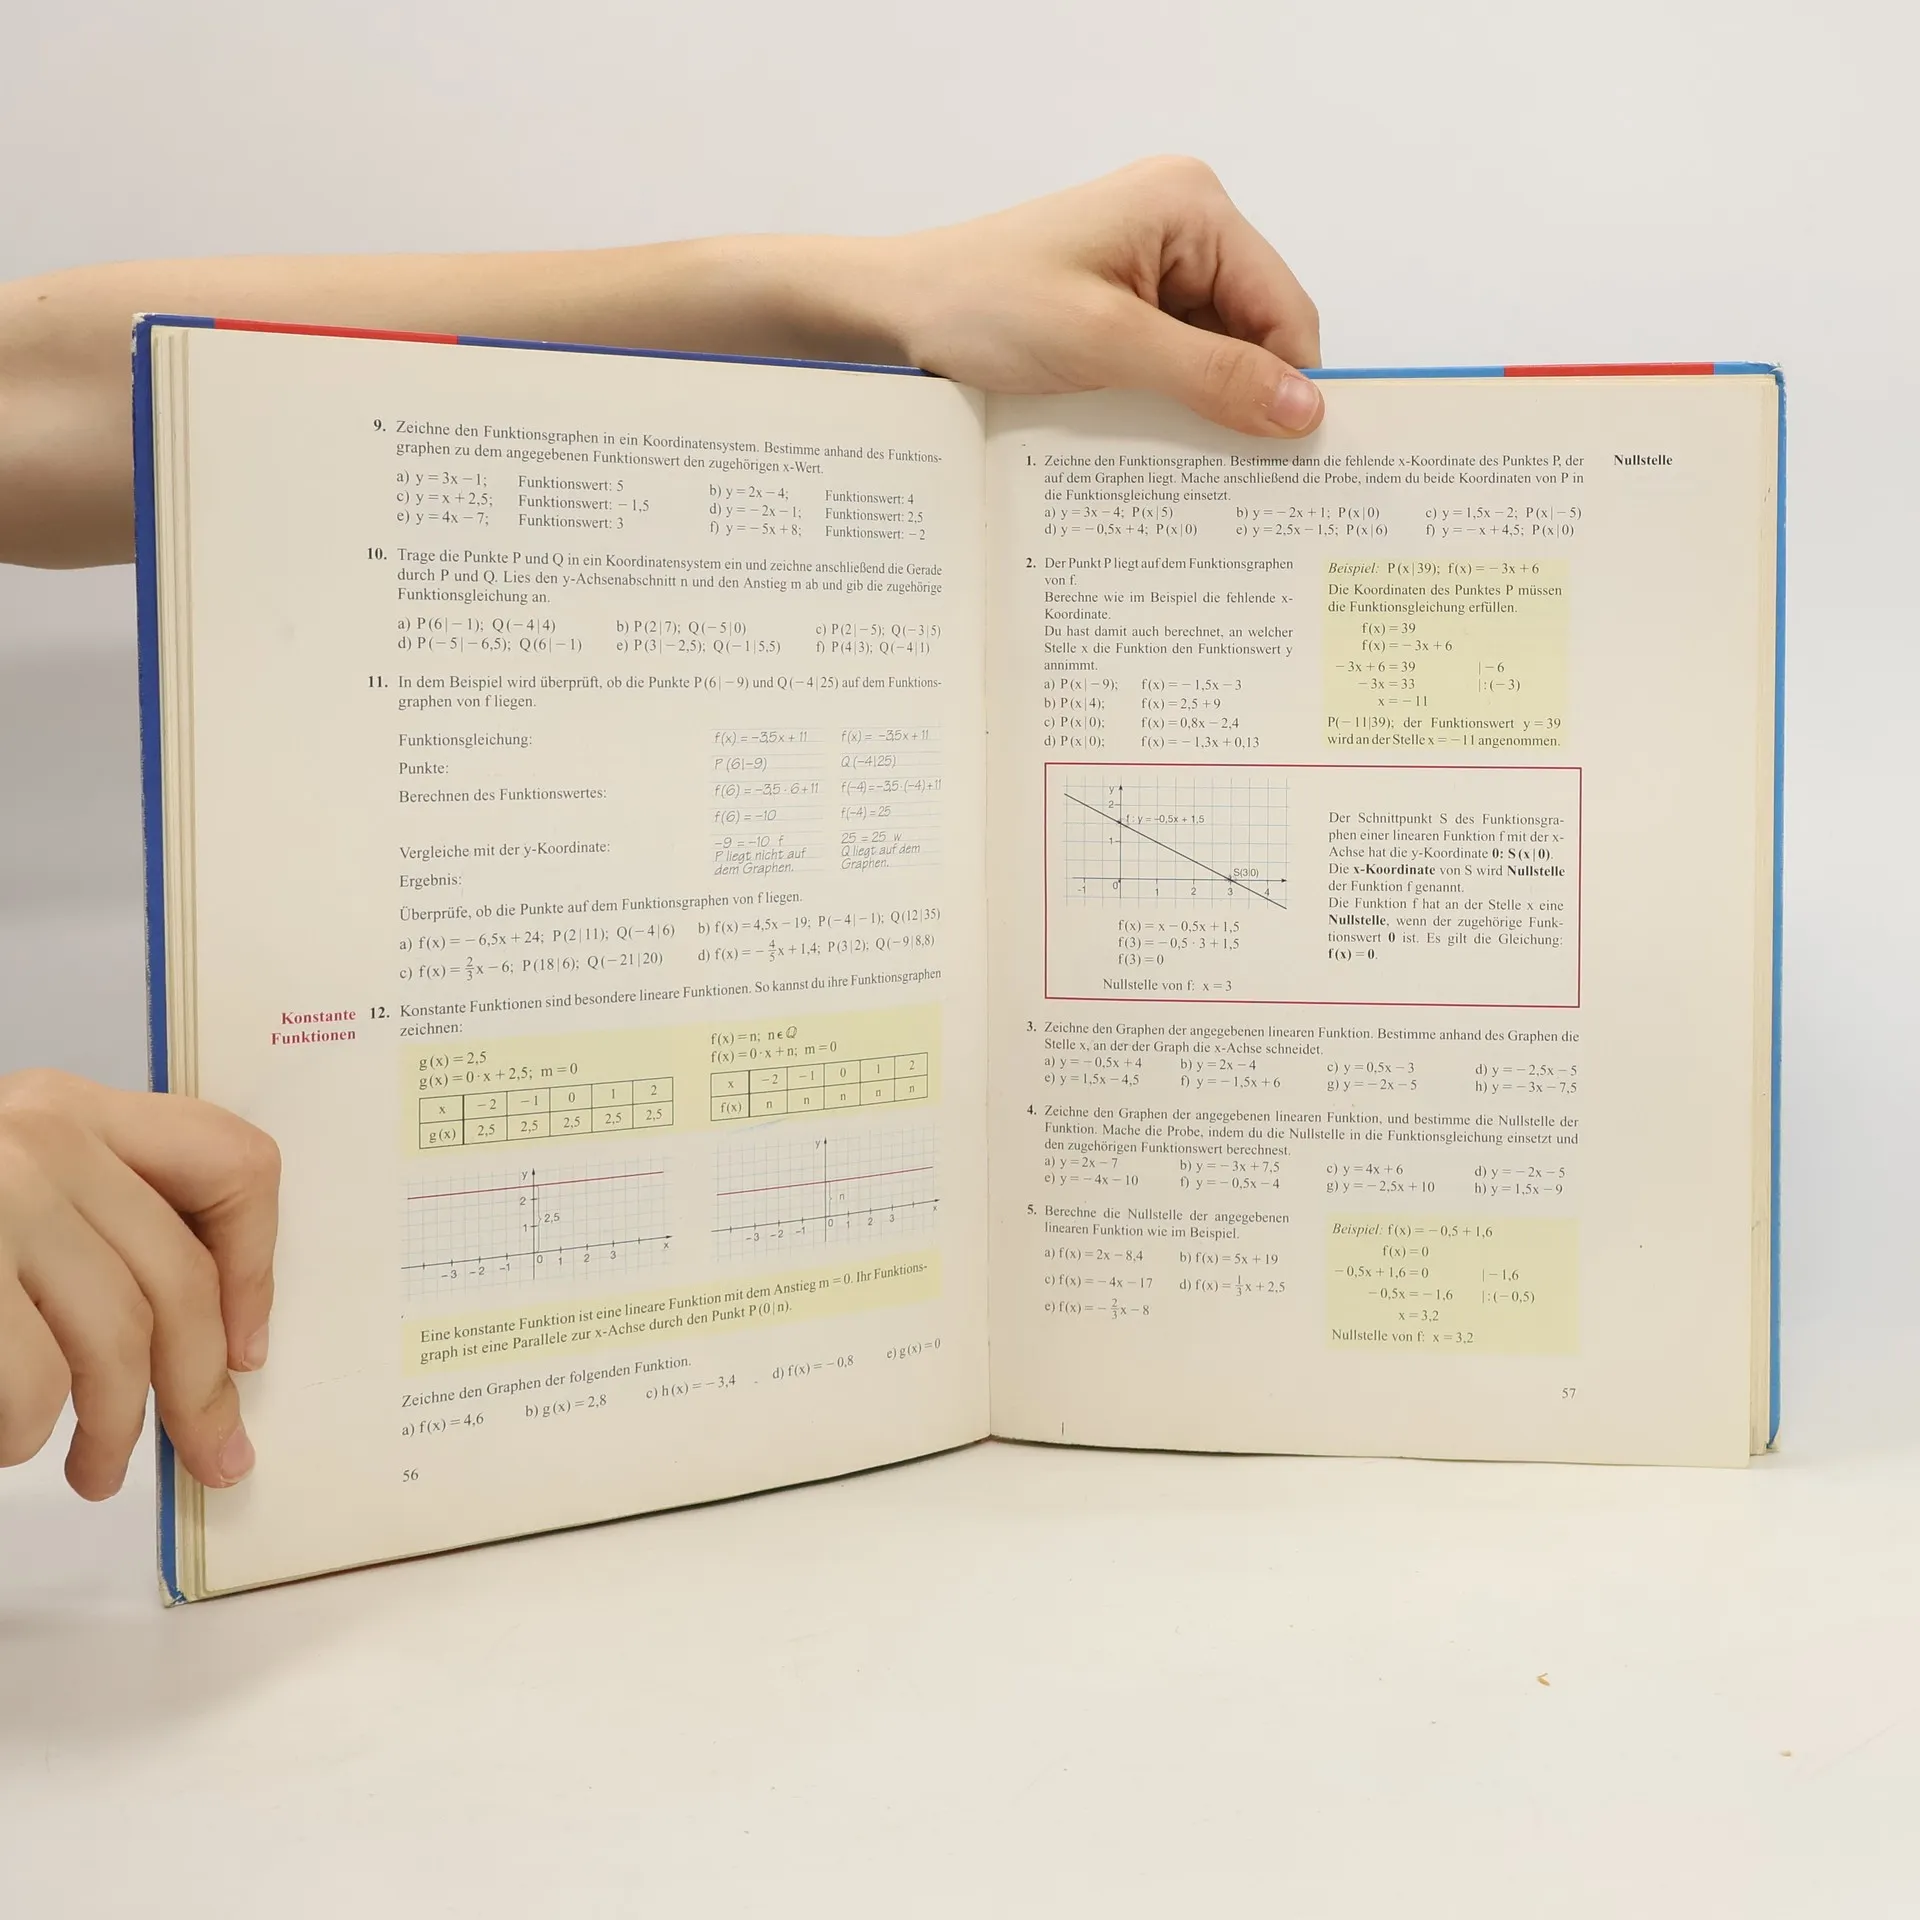 9. Zeichne den Funktionsgraphen in ein Koordinatensystem. Bestimme anhand des Funktions-
graphen zu dem angegebenen Funktionswert den zugehörigen x-Wert.
a) y = 3x − 1; Funktionswert: 5 b) y = 2x − 4; Funktionswert: 4
c) y = x + 2,5; Funktionswert: − 1,5 d) y = − 2x − 1; Funktionswert: 2,5
e) y = 4x − 7; Funktionswert: 3 f) y = − 5x + 8; Funktionswert: − 2
10. Trage die Punkte P und Q in ein Koordinatensystem ein und zeichne anschließend die Gerade
durch P und Q. Lies den y-Achsenabschnitt n und den Anstieg m ab und gib die zugehörige
Funktionsgleichung an.
a) P(6|− 1); Q(− 4|4) b) P(2|7); Q(− 5|0) c) P(2|− 5); Q(− 3|5)
d) P(− 5|− 6,5); Q(6|− 1) e) P(3|− 2,5); Q(− 1|5,5) f) P(4|3); Q(− 4|1)
11. In dem Beispiel wird überprüft, ob die Punkte P(6|− 9) und Q(− 4|25) auf dem Funktions-
graphen von f liegen.
Funktionsgleichung: f(x) = −3,5x + 11 f(x) = −3,5x + 11
Punkte: P(6|−9) Q(−4|25)
Berechnen des Funktionswertes: f(6) = −3,5 · 6 + 11 f(−4) = −3,5·(−4)+11
f(6) = −10 f(−4) = 25
Vergleiche mit der y-Koordinate: −9 = −10 f 25 = 25 w
Ergebnis: P liegt nicht auf Q liegt auf dem
dem Graphen. Graphen.
Überprüfe, ob die Punkte auf dem Funktionsgraphen von f liegen.
a) f(x) = − 6,5x + 24; P(2|11); Q(− 4|6) b) f(x) = 4,5x − 19; P(− 4|− 1); Q(12|35)
c) f(x) = 2/3x − 6; P(18|6); Q(− 21|20) d) f(x) = − 4/5x + 1,4; P(3|2); Q(− 9|8,8)
Konstante
Funktionen
12. Konstante Funktionen sind besondere lineare Funktionen. So kannst du ihre Funktionsgraphen
zeichnen:
g(x) = 2,5
g(x) = 0 · x + 2,5; m = 0
x − 2 − 1 0 1 2
g(x) 2,5 2,5 2,5 2,5 2,5
f(x) = n; n ∈ Q
f(x) = 0 · x + n; m = 0
x − 2 − 1 0 1 2
f(x) n n n n n
y
2
2,5
1
− 3 − 2 − 1 0 1 2 3 x
y
n
− 3 − 2 − 1 0 1 2 3 x
Eine konstante Funktion ist eine lineare Funktion mit dem Anstieg m = 0. Ihr Funktions-
graph ist eine Parallele zur x-Achse durch den Punkt P(0|n).
Zeichne den Graphen der folgenden Funktion.
a) f(x) = 4,6 b) g(x) = 2,8 c) h(x) = − 3,4 d) f(x) = − 0,8 e) g(x) = 0
56
Nullstelle
1. Zeichne den Funktionsgraphen. Bestimme dann die fehlende x-Koordinate des Punktes P, der
auf dem Graphen liegt. Mache anschließend die Probe, indem du beide Koordinaten von P in
die Funktionsgleichung einsetzt.
a) y = 3x − 4; P(x|5) b) y = − 2x + 1; P(x|0) c) y = 1,5x − 2; P(x|− 5)
d) y = − 0,5x + 4; P(x|0) e) y = 2,5x − 1,5; P(x|6) f) y = − x + 4,5; P(x|0)
2. Der Punkt P liegt auf dem Funktionsgraphen
von f.
Berechne wie im Beispiel die fehlende x-
Koordinate.
Du hast damit auch berechnet, an welcher
Stelle x die Funktion den Funktionswert y
annimmt.
a) P(x|− 9); f(x) = − 1,5x − 3
b) P(x|4); f(x) = 2,5 + 9
c) P(x|0); f(x) = 0,8x − 2,4
d) P(x|0); f(x) = − 1,3x + 0,13
Beispiel: P(x|39); f(x) = − 3x + 6
Die Koordinaten des Punktes P müssen
die Funktionsgleichung erfüllen.
f(x) = 39
f(x) = − 3x + 6
− 3x + 6 = 39 |− 6
− 3x = 33 |:(− 3)
x = − 11
P(− 11|39); der Funktionswert y = 39
wird an der Stelle x = − 11 angenommen.
y
2
f: y = −0,5x + 1,5
1
S(3|0)
-1 0 1 2 3 4
f(x) = x − 0,5x + 1,5
f(3) = − 0,5 · 3 + 1,5
f(3) = 0
Nullstelle von f: x = 3
Der Schnittpunkt S des Funktionsgra-
phen einer linearen Funktion f mit der x-
Achse hat die y-Koordinate 0: S(x|0).
Die x-Koordinate von S wird Nullstelle
der Funktion f genannt.
Die Funktion f hat an der Stelle x eine
Nullstelle, wenn der zugehörige Funk-
tionswert 0 ist. Es gilt die Gleichung:
f(x) = 0.
3. Zeichne den Graphen der angegebenen linearen Funktion. Bestimme anhand des Graphen die
Stelle x, an der der Graph die x-Achse schneidet.
a) y = − 0,5x + 4 b) y = 2x − 4 c) y = 0,5x − 3 d) y = − 2,5x − 5
e) y = 1,5x − 4,5 f) y = − 1,5x + 6 g) y = − 2x − 5 h) y = − 3x − 7,5
4. Zeichne den Graphen der angegebenen linearen Funktion, und bestimme die Nullstelle der
Funktion. Mache die Probe, indem du die Nullstelle in die Funktionsgleichung einsetzt und
den zugehörigen Funktionswert berechnest.
a) y = 2x − 7 b) y = − 3x + 7,5 c) y = 4x + 6 d) y = − 2x − 5
e) y = − 4x − 10 f) y = − 0,5x − 4 g) y = − 2,5x + 10 h) y = 1,5x − 9
5. Berechne die Nullstelle der angegebenen
linearen Funktion wie im Beispiel.
a) f(x) = 2x − 8,4 b) f(x) = 5x + 19
c) f(x) = − 4x − 17 d) f(x) = 1/3x + 2,5
e) f(x) = − 2/3x − 8
Beispiel: f(x) = − 0,5 + 1,6
f(x) = 0
− 0,5x + 1,6 = 0 |− 1,6
− 0,5x = − 1,6 |:(− 0,5)
x = 3,2
Nullstelle von f: x = 3,2
57